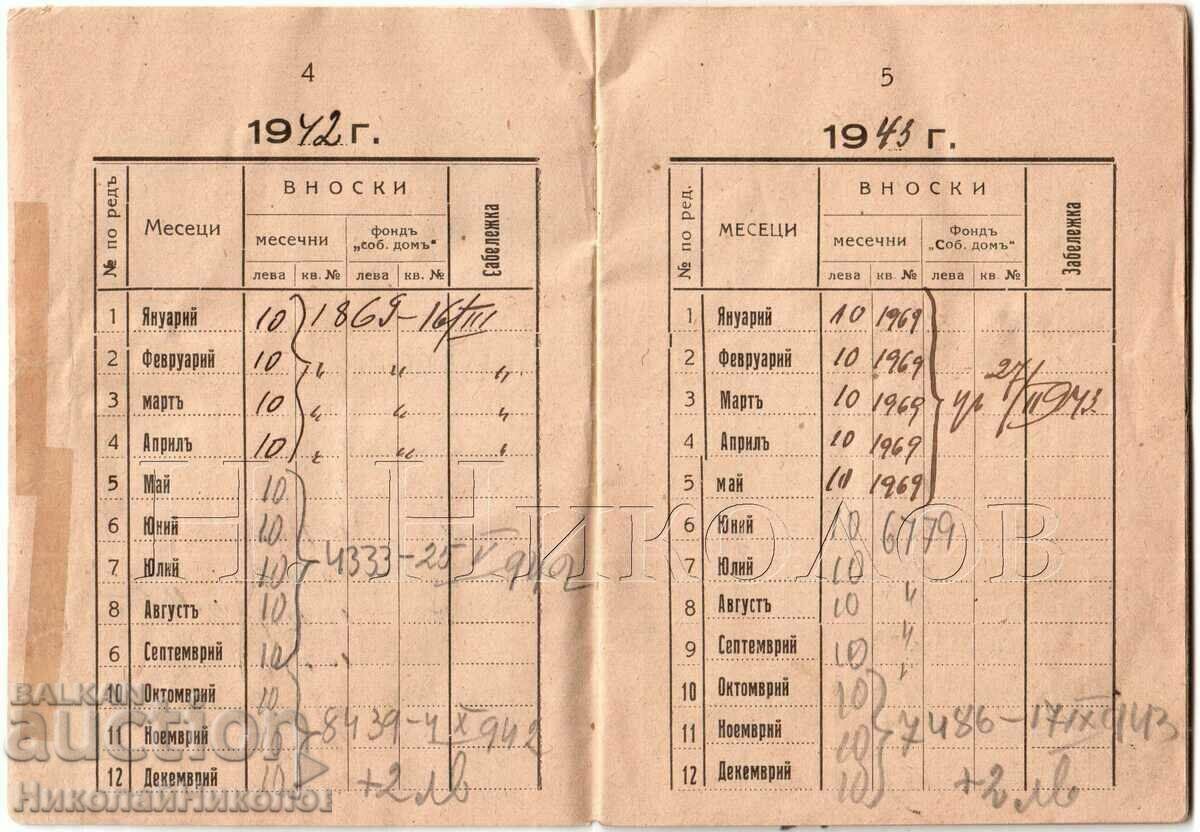 4
1942 г.
№ по редъ
Месеци
ВНОСКИ
месечни
фондъ „соб. домъ“
Сабележка
лева кв. № лева кв. №
1 Януарий 10 1869-16/III
2 Февруарий 10 " " "
3 мартъ 10 " " "
4 Априлъ 10 " " "
5 Май 10
6 Юний 10
7 Юлий 10 4333-25 V 942
8 Августъ 10
6 Септемврий 10
10 Октомврий 10
11 Ноемврий 10 8439-4 X 942
12 Декемврий 10 +2 лв
5
1943 г.
№ по ред.
МЕСЕЦИ
ВНОСКИ
месечни
Фондъ „Соб. домъ“
Забележка
лева кв. № лева кв. №
1 Януарий 10 1969
2 Февруарий 10 1969
3 Мартъ 10 1969 27/II 943.
4 Априлъ 10 1969
5 май 10 1969
6 Юний 10 6779
7 Юлий 10 "
8 Августъ 10 "
9 Септемврий 10 "
10 Октомврий 10
11 Ноемврий 10 7486-17 IX 943
12 Декемврий 10 +2 лв
Н. Николов
BALKAN
auction
НиколайНиколов